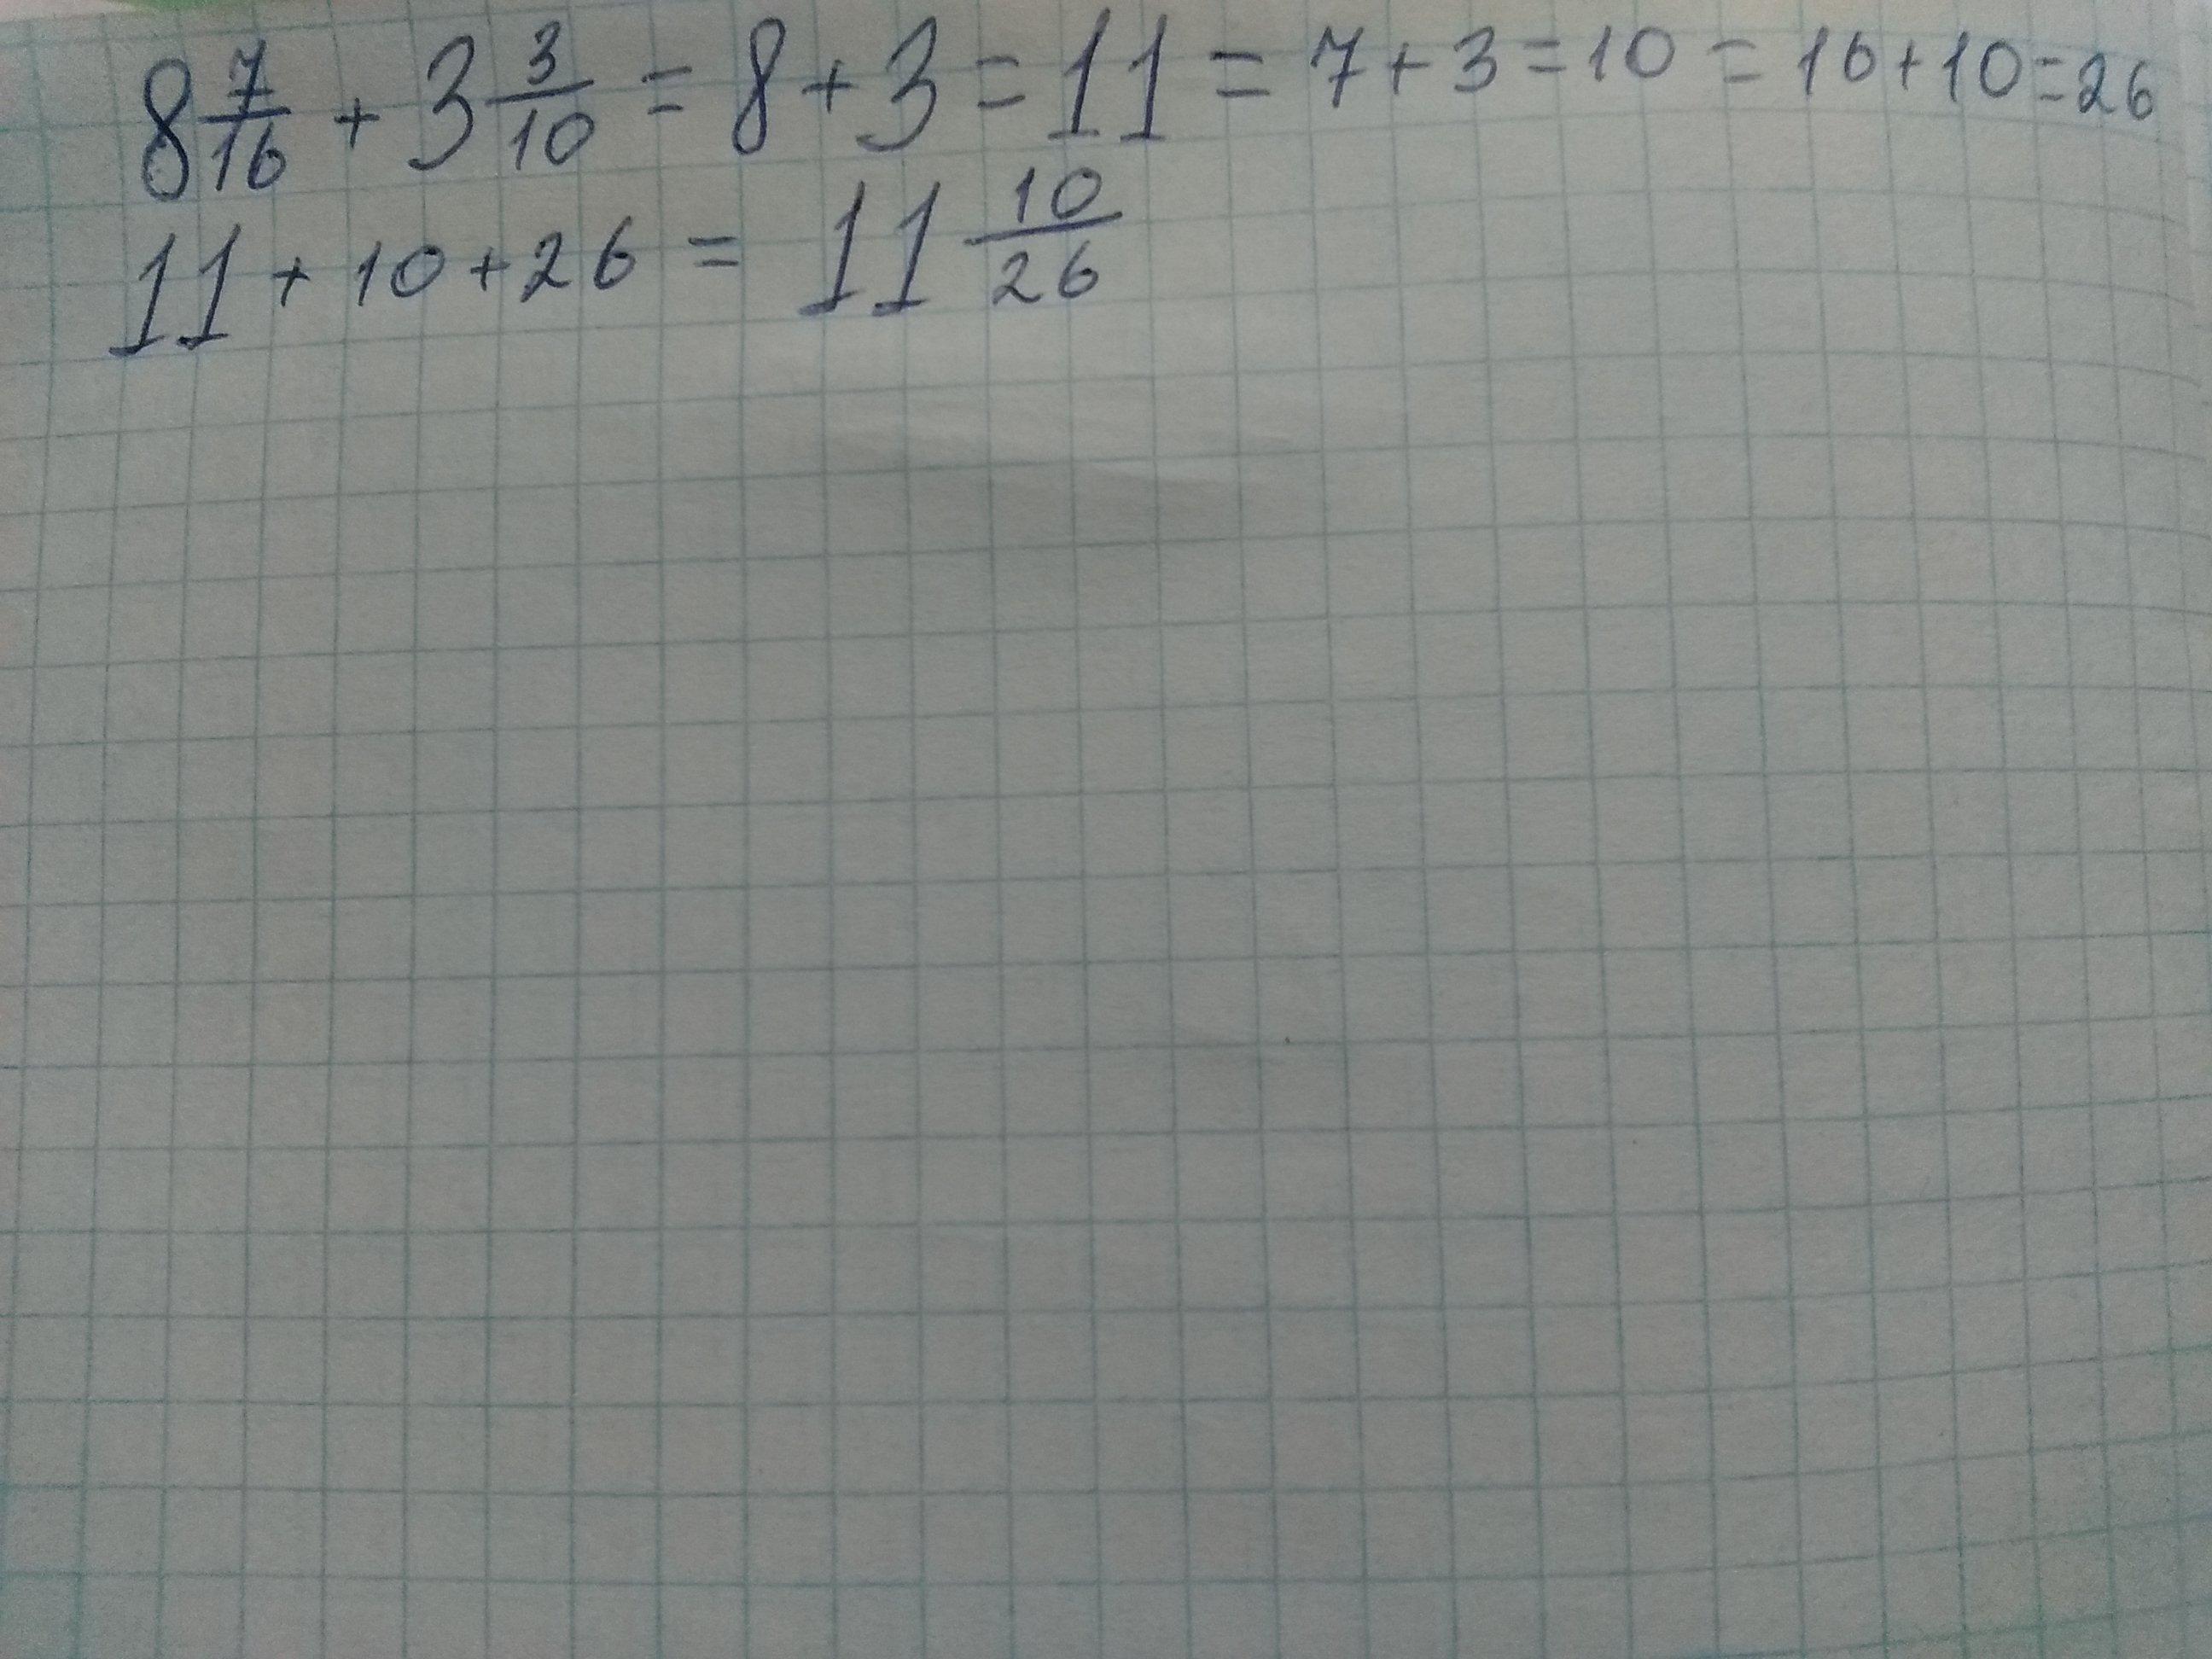 8 7/16 + 3 3/10 = 8 + 3 = 11 = 7 + 3 = 10 = 16 + 10 = 26
11 + 10 + 26 = 11 10/26